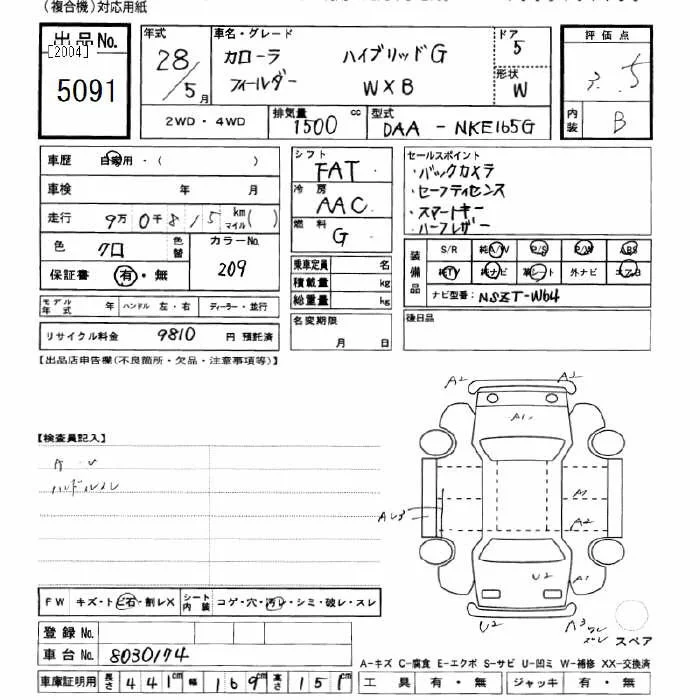 (複合機)対応用紙
出品No.
[2004]
5091
年式 28/5月
車名・グレード カローラ フィールダー ハイブリッドG W×B
ドア 5
形状 W
評価点 3.5
内装 B
2WD・4WD
排気量 1500 cc
型式 DAA-NKE165G
車歴 自家用・( )
車検 年 月
走行 9万0千815 km マイル( )
色 クロ
色替
カラーNo. 209
保証書 有・無
シフト FAT
冷房 AAC
燃料 G
セールスポイント
・バックカメラ
・セーフティセンス
・スマートキー
・ハーフレザー
乗車定員 名
積載量 kg
総重量 kg
装備品
S/R 純A/W P/S P/W ABS
純TV 純ナビ 革シート 外ナビ エアB
ナビ型番: NSZT-W64
モデル年式 年 ハンドル 左・右 ディーラー・並行
名変期限 月 日
後日品
リサイクル料金 9810 円 預託済
【出品店申告欄(不良箇所・欠品・注意事項等)】
【検査員記入】
A・U
ハンドルスレ
A2 A2
A1
A1
A2
U2 A1
U2 A3
スペア
FW キズ・トビ石・割レX
シート内装 コゲ・穴・汚レ・シミ・破レ・スレ
登録No.
車台No. 8030174
A-キズ C-腐食 E-エクボ S-サビ U-凹ミ W-補修 XX-交換済
車庫証明用 長さ 441cm 幅 169cm 高さ 151cm
工具 有・無 ジャッキ 有・無